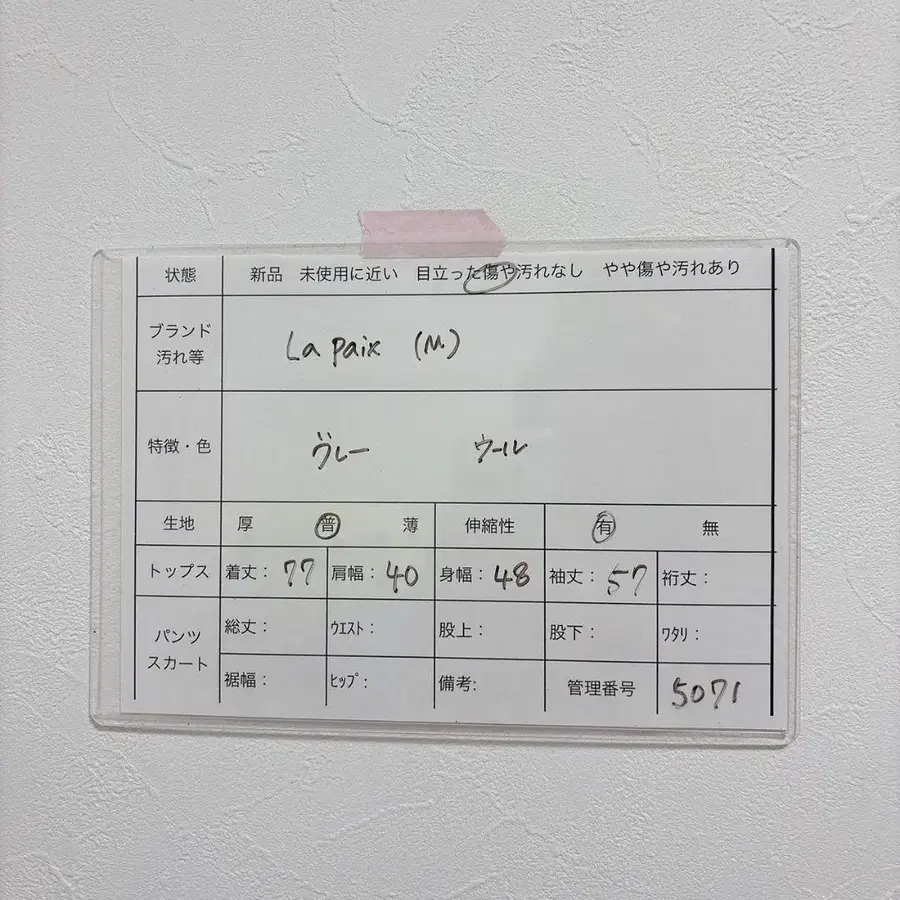 状態 新品 未使用に近い 目立った傷や汚れなし やや傷や汚れあり
ブランド
汚れ等
La paix (M)
特徴・色 グレー ウール
生地 厚 普 薄 伸縮性 有 無
トップス 着丈: 77 肩幅: 40 身幅: 48 袖丈: 57 裄丈:
パンツ
スカート
総丈: ウエスト: 股上: 股下: ワタリ:
裾幅: ヒップ: 備考: 管理番号 5071